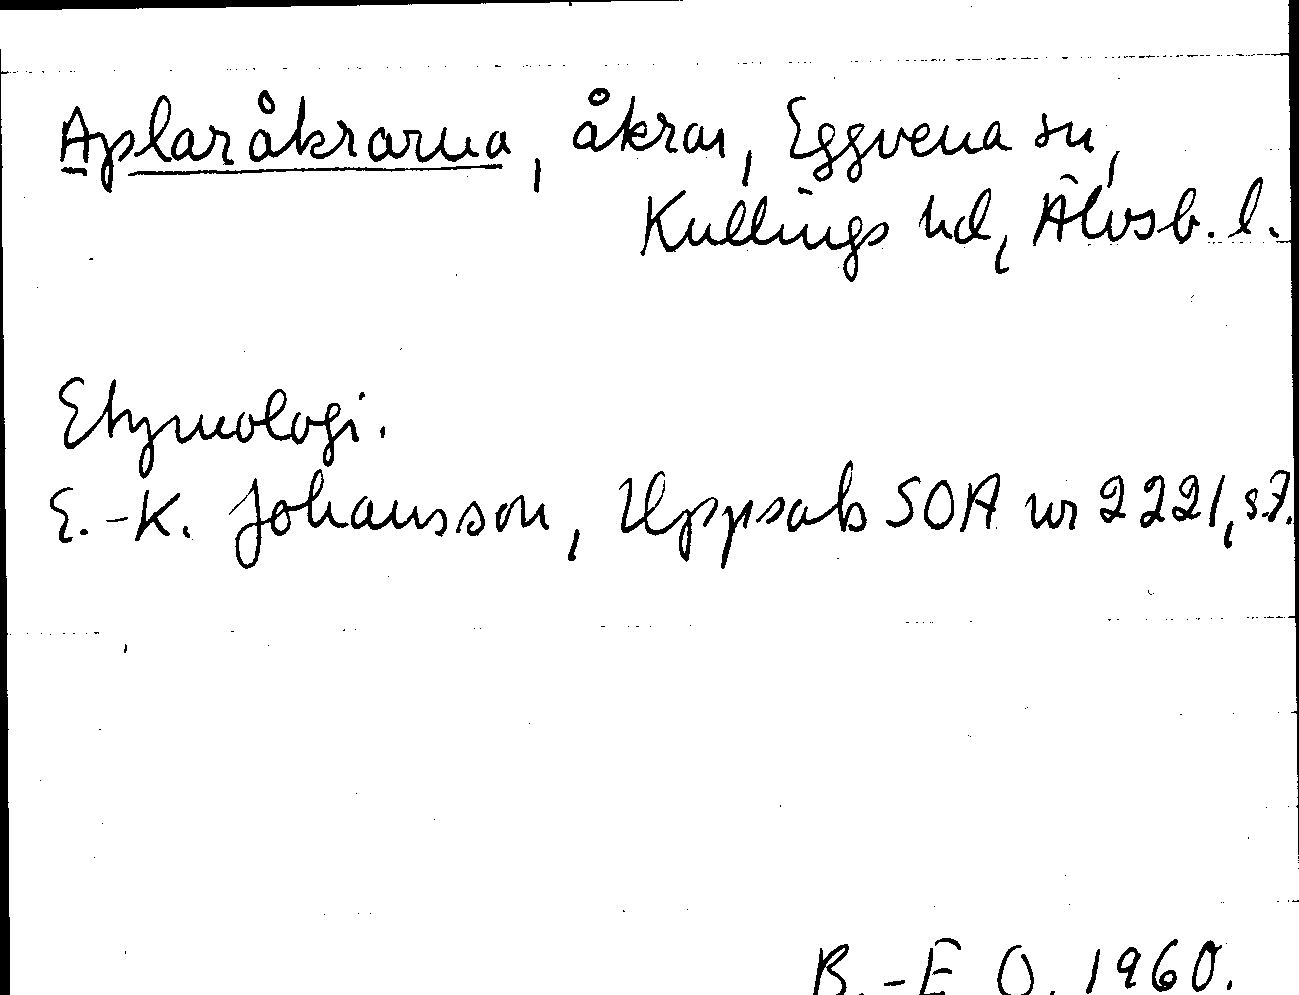 Aplaråkrarna, åkrar, Eggvena sn,
Kullings hd, Älvsb. l.
Etymologi.
E.-K. Johansson, Uppsats SOA nr 2221, s.7.
B.-E O. 1960.